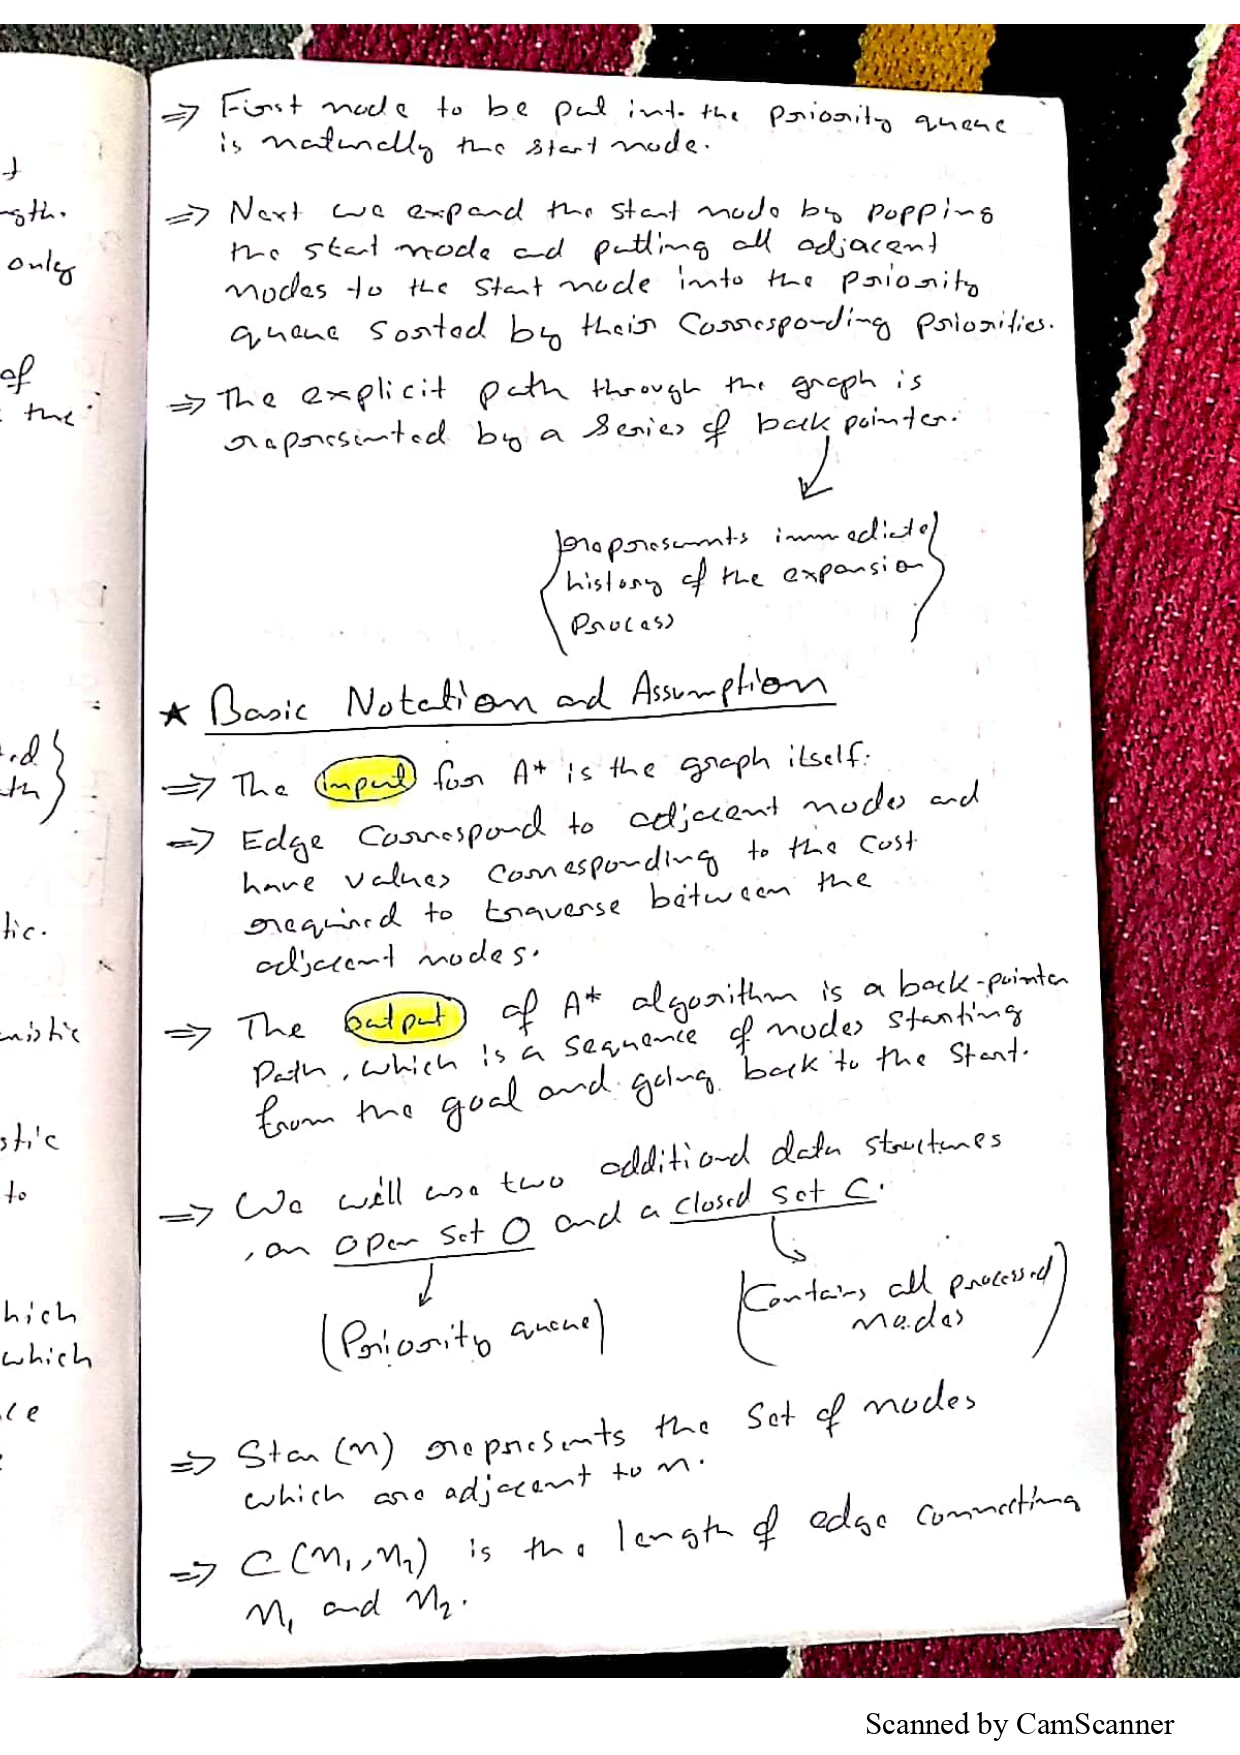 ⇒ First node to be put into the priority queue
is naturally the start node.
⇒ Next we expand the start node by popping
the start node and putting all adjacent
nodes to the start node into the priority
queue sorted by their corresponding priorities.
⇒ The explicit path through the graph is
represented by a series of back pointer.
(represents immediate
history of the expansion
process)
★ Basic Notation and Assumption
⇒ The input for A* is the graph itself.
⇒ Edge correspond to adjacent nodes and
have values corresponding to the cost
required to traverse between the
adjacent nodes.
⇒ The output of A* algorithm is a back-pointer
path, which is a sequence of nodes starting
from the goal and going back to the start.
⇒ We will use two additional data structures
, an open set O and a closed set C.
(Priority queue)
(Contains all processed
nodes)
⇒ Star(n) represents the set of nodes
which are adjacent to n.
⇒ C(n₁,n₂) is the length of edge connecting
n₁ and n₂.
only
of
the
hich
which
to
Scanned by CamScanner